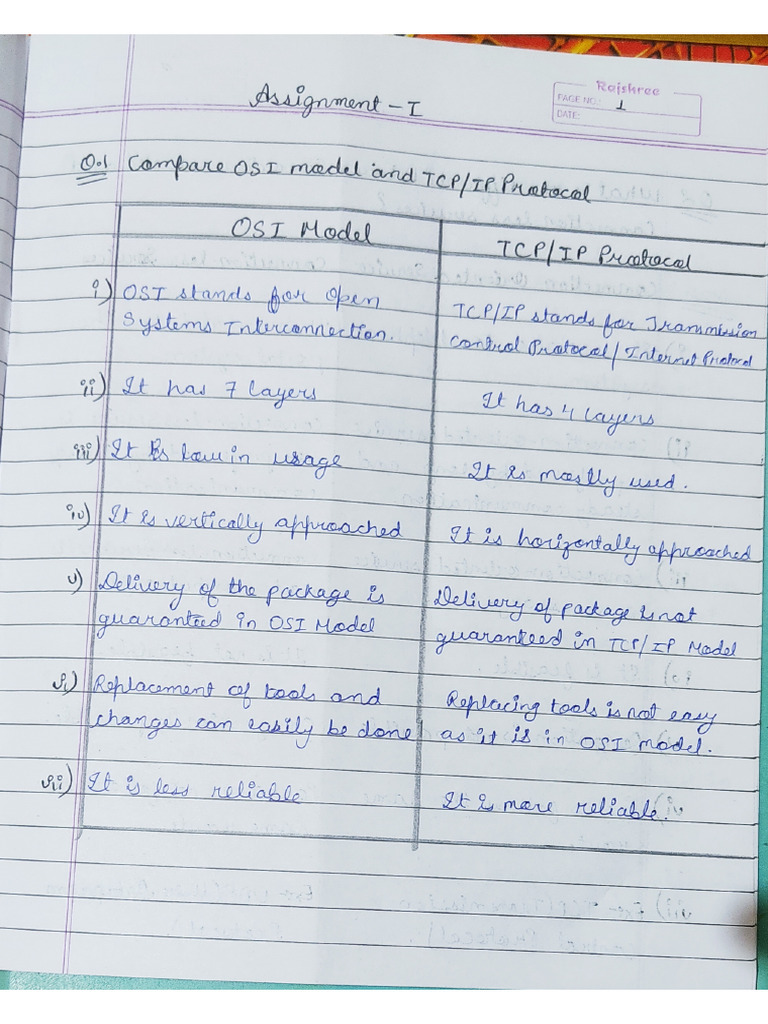 Assignment - I
Rajshree
PAGE NO.: 1
DATE:
Q.1 Compare OSI model and TCP/IP Protocol
OSI Model
TCP/IP Protocol
i) OSI stands for Open
Systems Interconnection.
TCP/IP stands for Transmission
Control Protocol/Internet Protocol
ii) It has 7 layers
It has 4 layers
iii) It is low in usage
It is mostly used.
iv) It is vertically approached
It is horizontally approached
v) Delivery of the package is
guaranteed in OSI Model
Delivery of package is not
guaranteed in TCP/IP Model
vi) Replacement of tools and
changes can easily be done
Replacing tools is not easy
as it is in OSI model.
vii) It is less reliable
It is more reliable.